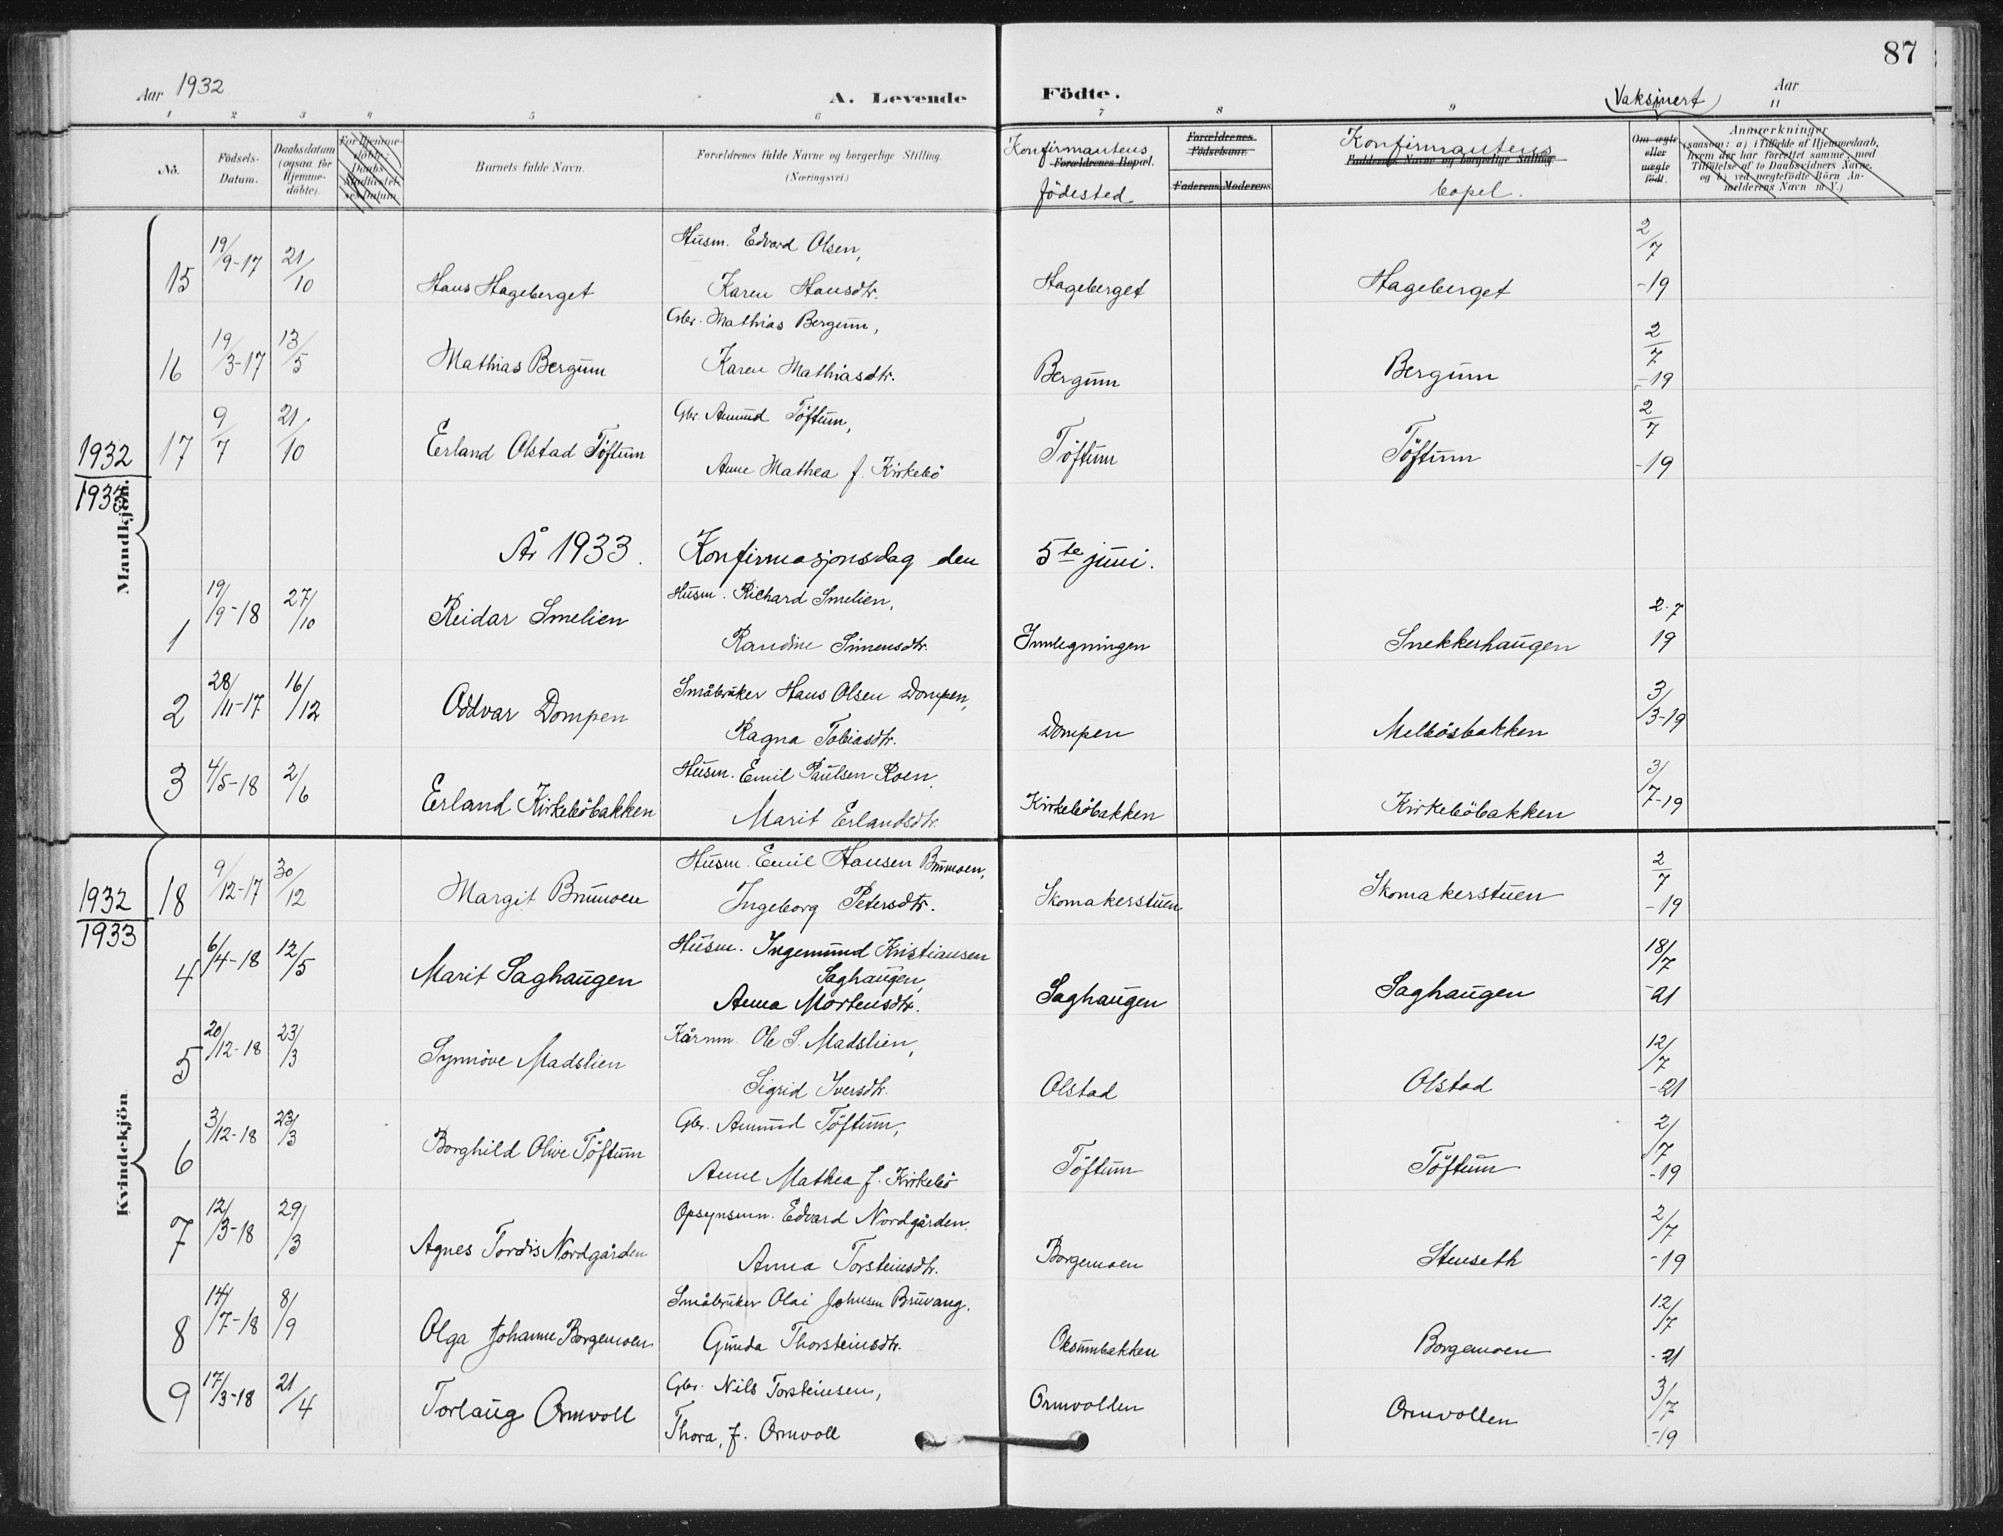 87
Aar 1932
A. Levende Födte.
Vaksinert
Aar
1 2 3 4 5 6 7 8 9 11
No.
Födsels-Datum.
Daabsdatum (ogsaa for Hjemme-döbte).
Barnets fulde Navn.
Forældrenes fulde Navne og borgerlige Stilling. (Næringsvei.)
Konfirmantens
Forældrenes Bopæl.
födested
Forældrenes Födselsaar.
Faderens Moderens
Konfirmantens
Faddernes Navne og borgerlige Stilling
bopel.
Om ægte eller uægte födt.
Anmærkninger
1932
1933
Mandkjön.
15 19/9-17 21/10 Hans Hageberget Husm. Edvard Olsen, Karen Hansdtr. Hageberget Hageberget 2/7-19
16 19/3-17 13/5 Mathias Bergum Gbr. Mathias Bergum, Karen Mathiasdtr. Bergum Bergum 2/7-19
17 9/7 21/10 Erland Olstad Töftum Gbr. Amund Töftum, Anne Mathea f. Kirkebö Töftum Töftum 2/7-19
År 1933. Konfirmasjonsdag den 5te juni.
1 19/9-18 27/10 Reidar Smelien Husm. Richard Smelien, Randine Simensdtr. Innlegningen Snekkerhaugen 2-7 19
2 28/11-17 16/12 Oddvar Dompen Småbruker Hans Olsen Dompen, Ragna Tobiasdtr. Dompen Melbösbakken 3/3-19
3 4/5-18 2/6 Erland Kirkeböbakken Husm. Emil Paulsen Roen, Marit Erlandsdtr. Kirkeböbakken Kirkeböbakken 3/7-19
1932
1933
Kvindekjön
18 9/12-17 30/12 Margit Brumoen Husm. Emil Hansen Brumoen, Ingeborg Petersdtr. Skomakerstuen Skomakerstuen 2/7-19
4 6/4-18 12/5 Marit Saghaugen Husm. Ingemund Kristiansen Saghaugen, Anna Mortensdtr. Saghaugen Saghaugen 18/7-21
5 20/12-18 23/3 Synnöve Madslien Kårmn. Ole S. Madslien, Sigrid Iversdtr. Olstad Olstad 12/7-21
6 3/12-18 23/3 Borghild Olive Töftum Gbr. Amund Töftum, Anne Mathea f. Kirkebö Töftum Töftum 2/7-19
7 12/3-18 29/3 Agnes Tordis Nordgården Opsynsmn. Edvard Nordgården, Anna Torsteinsdtr. Borgemoen Stenseth 2/7-19
8 14/7-18 8/9 Olga Johanne Borgemoen Småbruker Olai Johnsen Bruvang. Gunda Thorsteinsdtr. Oksumbakken Borgemoen 12/7-21
9 17/3-18 21/4 Torlaug Ormvoll Gbr. Nils Torsteinsen, Thora, f. Ormvoll Ormvollen Ormvollen 3/7-19